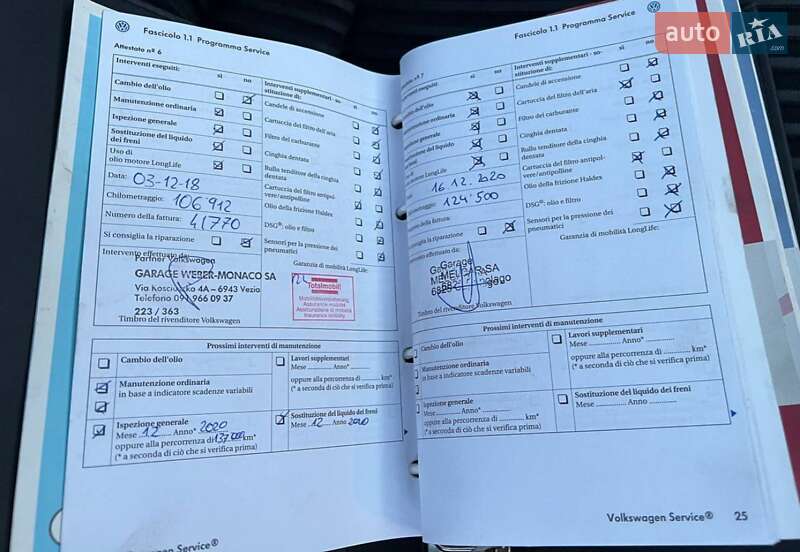 Fascicolo 1.1 Programma Service
Attestato nº 6
Interventi eseguiti:
sì
no
Interventi supplementari - so-
stituzione di:
sì
no
Cambio dell'olio
Manutenzione ordinaria
Ispezione generale
Sostituzione del liquido
dei freni
Uso di
olio motore LongLife
Data:
03-12-18
Chilometraggio:
106 912
Numero della fattura:
41770
Si consiglia la riparazione
Candele di accensione
Cartuccia del filtro dell'aria
Filtro del carburante
Cinghia dentata
Rullo tenditore della cinghia
dentata
Cartuccia del filtro antipol-
vere/antipolline
Olio della frizione Haldex
DSG®, olio e filtro
Sensori per la pressione dei
pneumatici
Garanzia di mobilità LongLife:
Intervento effettuato da:
Partner Volkswagen
GARAGE WEBER-MONACO SA
Via Kosciuszko 4A – 6943 Vezia
Telefono 091 966 09 37
223 / 363
Timbro del rivenditore Volkswagen
Totalmobil!
Mobilitätsversicherung
Assurance mobilité
Assicurazione di mobilità
Insurance mobility
Prossimi interventi di manutenzione
Cambio dell'olio
Manutenzione ordinaria
in base a indicatore scadenze variabili
Ispezione generale
Mese 12 Anno* 2020
oppure alla percorrenza di 137.000 km*
(* a seconda di ciò che si verifica prima)
Lavori supplementari
Mese Anno*
oppure alla percorrenza di km*
(* a seconda di ciò che si verifica prima)
Sostituzione del liquido dei freni
Mese 12 Anno 2020
Volkswagen Service®
Fascicolo 1.1 Programma Service
nº 7
eseguiti:
sì
no
Interventi supplementari - so-
stituzione di:
sì
no
dell'olio
ordinaria
generale
del liquido
LongLife
16.12.2020
124'500
della fattura:
la riparazione
Candele di accensione
Cartuccia del filtro dell'aria
Filtro del carburante
Cinghia dentata
Rullo tenditore della cinghia
dentata
Cartuccia del filtro antipol-
vere/antipolline
Olio della frizione Haldex
DSG®, olio e filtro
Sensori per la pressione dei
pneumatici
Garanzia di mobilità LongLife:
effettuato da:
Garage
Timbro del rivenditore Volkswagen
Prossimi interventi di manutenzione
Cambio dell'olio
Manutenzione ordinaria
in base a indicatore scadenze variabili
Ispezione generale
Mese Anno*
oppure alla percorrenza di km*
(* a seconda di ciò che si verifica prima)
Lavori supplementari
Mese Anno*
oppure alla percorrenza di km*
(* a seconda di ciò che si verifica prima)
Sostituzione del liquido dei freni
Mese Anno
Volkswagen Service®
25
auto
RIA
.com